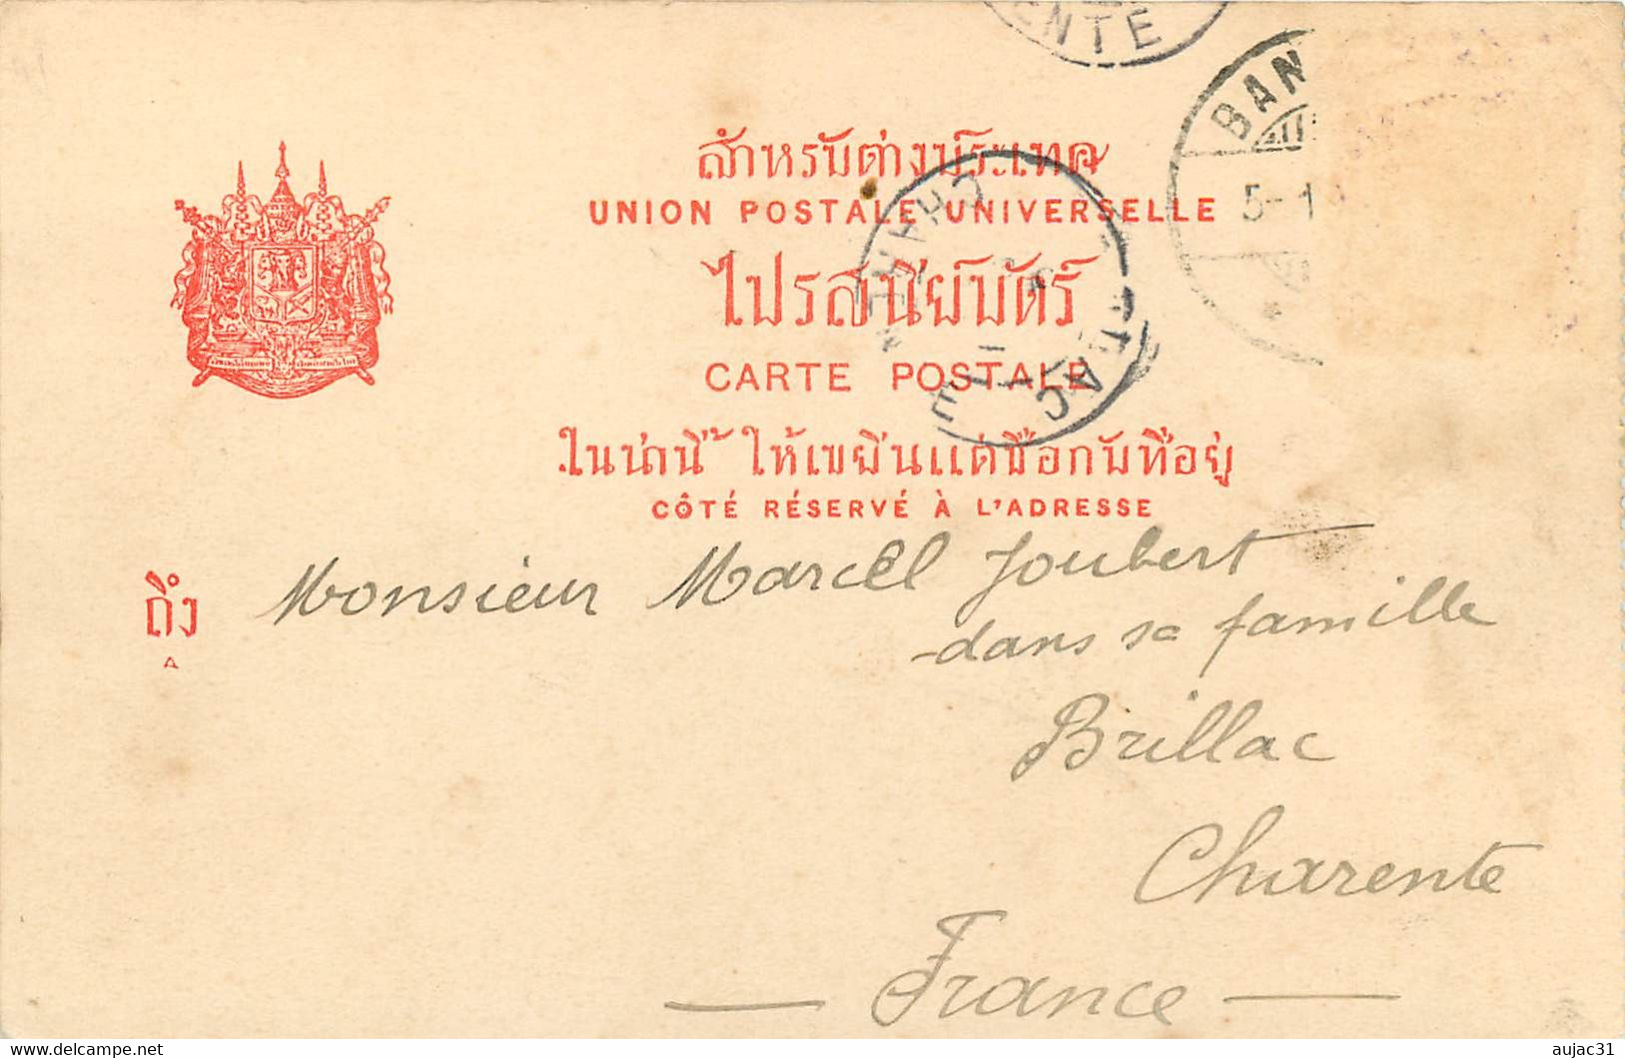 ENTE
BAN
5-1
สำหรับต่างประเทศ
UNION POSTALE UNIVERSELLE
ไปรสนียบัตร์
CARTE POSTALE
ในน่านี้ ให้เขียนแต่ชื่อกับที่อยู่
CÔTÉ RÉSERVÉ À L'ADRESSE
ถึง
A
Monsieur Marcel Joubert
dans sa famille
Brillac
Charente
France
CHARENTE
Delcampe.net
aujac31